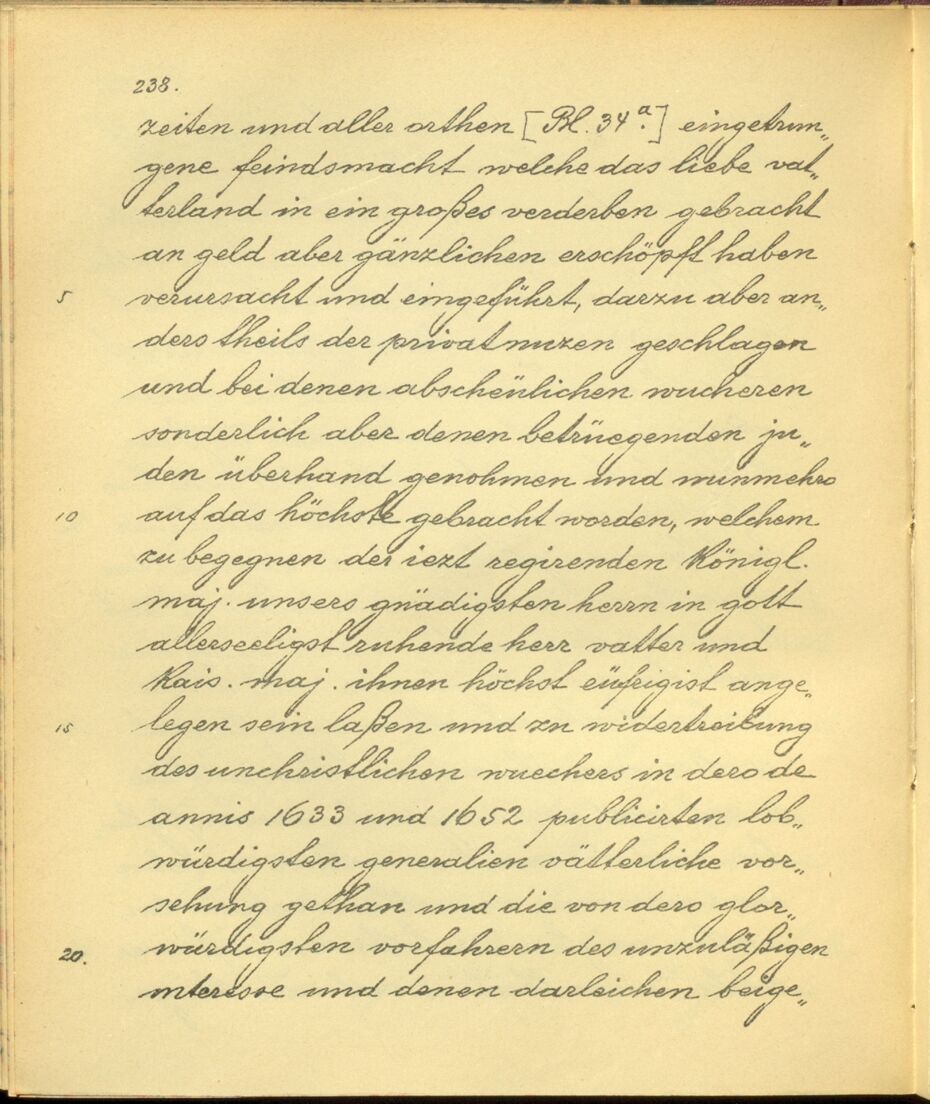 238.
zeiten und aller orthen [Bl. 34.a] eingetrun„
gene feindsmacht welche das liebe vat„
terland in ein großes verderben gebracht
an geld aber gänzlichen erschöpft haben
5 verursacht und eingeführt, darzu aber an„
ders theils der privatnuzen geschlagen
und bei denen abscheülichen wucheren
sonderlich aber denen betrüegenden ju„
den überhand genohmen und nunmehro
10 auf das höchste gebracht worden, welchem
zu begegnen der iezt regirenden Königl.
maj. unsers gnädigsten herrn in gott
allerseeligst ruhende herr vatter und
Kais. Maj. ihnen höchst eüfrigist ange„
15 legen sein laßen und zu widertreibung
des unchristlichen wuechers in dero de
annis 1633 und 1652 publicirten lob„
würdigsten generalien vätterliche vor„
sehung gethan und die von dero glor„
20. würdigsten vorfahrern des unzuläßigen
interesse und denen darleichen beige„